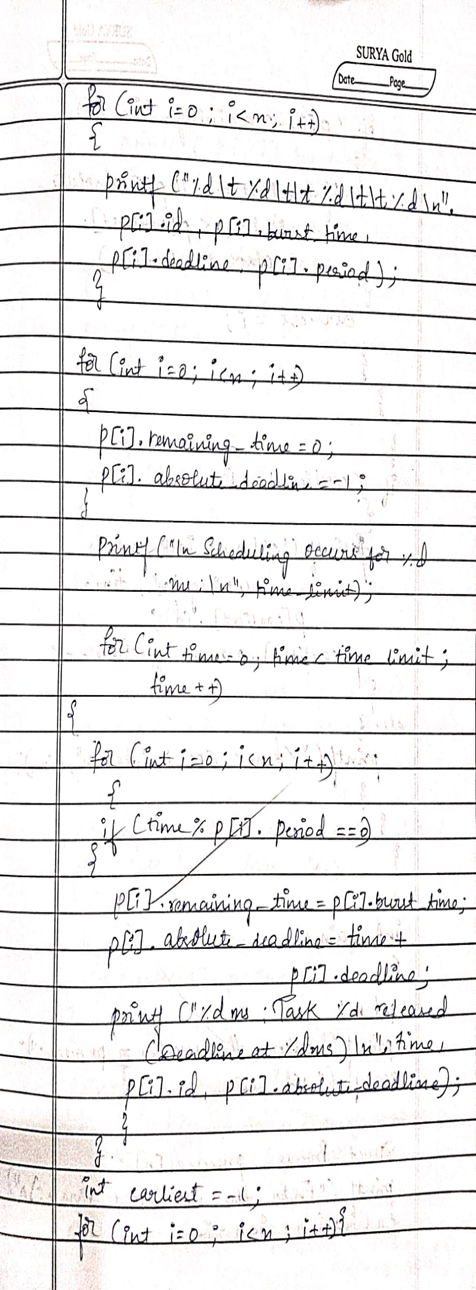 SURYA Gold
Date Page
for (int i=0 ; i<n; i++)
{
printf ("%d \t %d \t\t %d \t\t %d \n",
p[i].id , p[i].burst_time,
p[i].deadline, p[i].period);
}
for (int i=0; i<n ; i++)
{
p[i].remaining_time = 0;
p[i].absolute_deadline = -1;
}
printf ("\n Scheduling occurs for %d
ms :\n", time_limit);
for (int time=0; time < time_limit;
time++)
{
for (int i=0 ; i<n; i++)
{
if (time % p[i].period == 0)
{
p[i].remaining_time = p[i].burst_time;
p[i].absolute_deadline = time +
p[i].deadline;
printf ("%dms : Task %d released
(Deadline at %dms) \n", time,
p[i].id, p[i].absolute_deadline);
}
}
int earliest = -1;
for (int i=0 ; i<n ; i++){